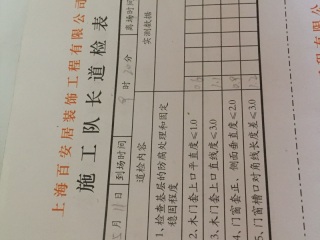 上海百安居装饰工程有限公司
施工队长道检表
11日 到场时间 9时20分 离场时间
道检内容 实测数据
1、检查基层的防腐处理和固定
稳固程度
2、木门套上口平直度≤1.0
3、木门套上口直线度≤3.0
4、门窗套正、侧面垂直度≤2.0
门窗槽口对角线长度差≤3.0